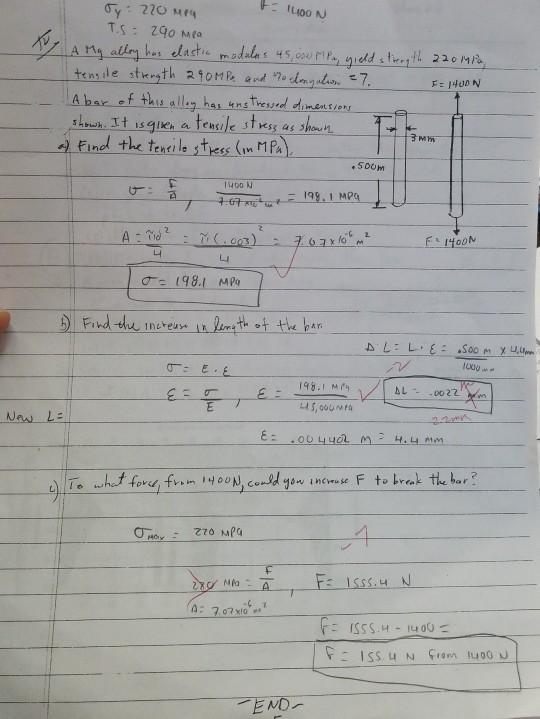 σy: 220 MPa
F = 1400N
T.S: 290 MPa
A Mg alloy has elastic modulus 45,000 MPa, yield strength 220 MPa,
tensile strength 290MPa and % elongation = 7.
F = 1400N
A bar of this alloy has unstressed dimensions
shown. It is given a tensile stress as shown
3mm
a) Find the tensile stress (in MPa).
.500m
σ = F/A, 1400N / 7.07x10⁻⁶m² = 198.1 MPa
A = πd²/4 = π(.003)²/4 = 7.07x10⁻⁶ m²
F = 1400N
σ = 198.1 MPa
b) Find the increase in length of the bar.
ΔL = L · ε = .500 m x 4.4mm / 1000mm
-2
σ = E · ε
ε = σ/E, ε = 198.1 MPa / 45,000MPa
ΔL = .0022 m
2.2mm
New L =
ε = .004402 m = 4.4 mm
c) To what force, from 1400N, could you increase F to break the bar?
σmax = 220 MPa
220 MPa = F/A, F = 1555.4 N
A = 7.07x10⁻⁶ m²
F = 1555.4 - 1400 =
F = 155.4 N from 1400 N
-END-